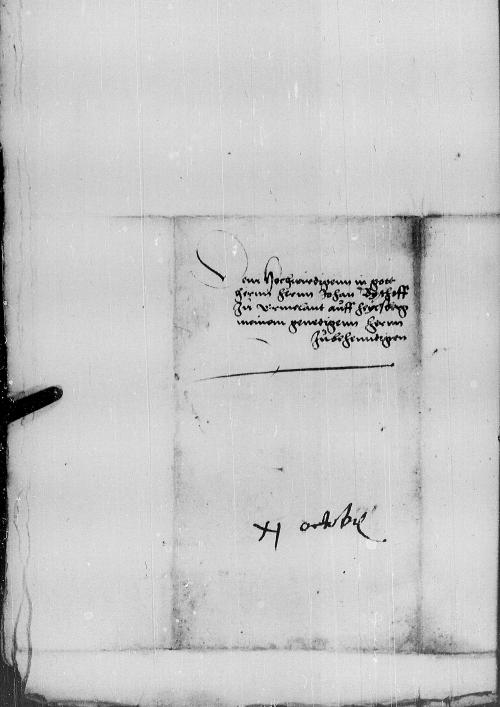 Dem Hochwirdigenn in gott
herrnn herrn Johan Bischoff
zu Ermelant auff heylsberg
meinem genedigenn herrn
zubehenndigen
XI octobris